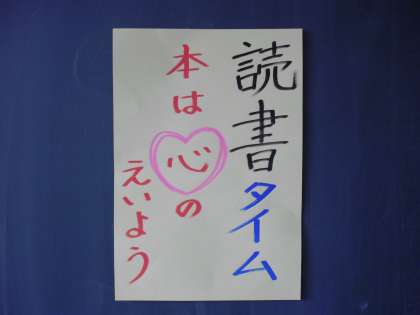 読書タイム
本は心の
えいよう